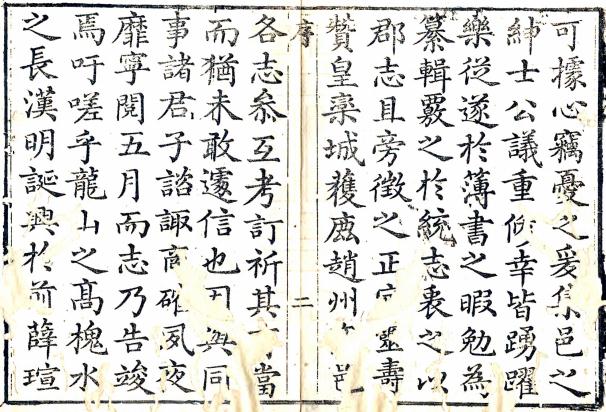 可據心竊憂之爰集邑之
紳士公議重修幸皆踴躍
樂從遂於薄書之暇勉為
纂輯覈之於統志表之以
郡志且旁徵之正定靈壽
贊皇欒城獲鹿趙州 邑
序
二
各志叅互考訂祈其 當
而猶未敢遽信也因與同
事諸君子諮諏商確夙夜
靡寧閱五月而志乃告竣
焉吁嗟乎龍山之高槐水
之長漢明誕興於前薛瑄